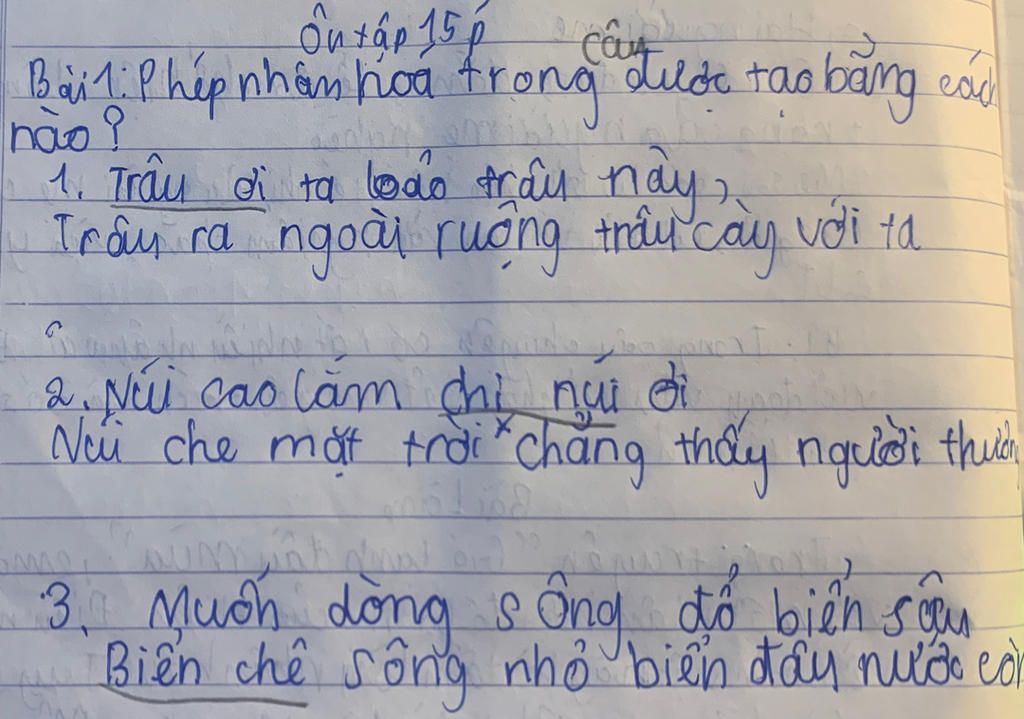 Ôn tập 15p
câu
Bài 1: Phép nhân hoá trong được tạo bằng cách
nào?
1. Trâu ơi ta bảo trâu này,
Trâu ra ngoài ruộng trâu cày với ta
2. Núi cao lắm chi núi ơi
Núi che mặt trời chẳng thấy người thương
3. Muốn dòng sông đổ biển sâu
Biển chê sông nhỏ biển đâu nước còn